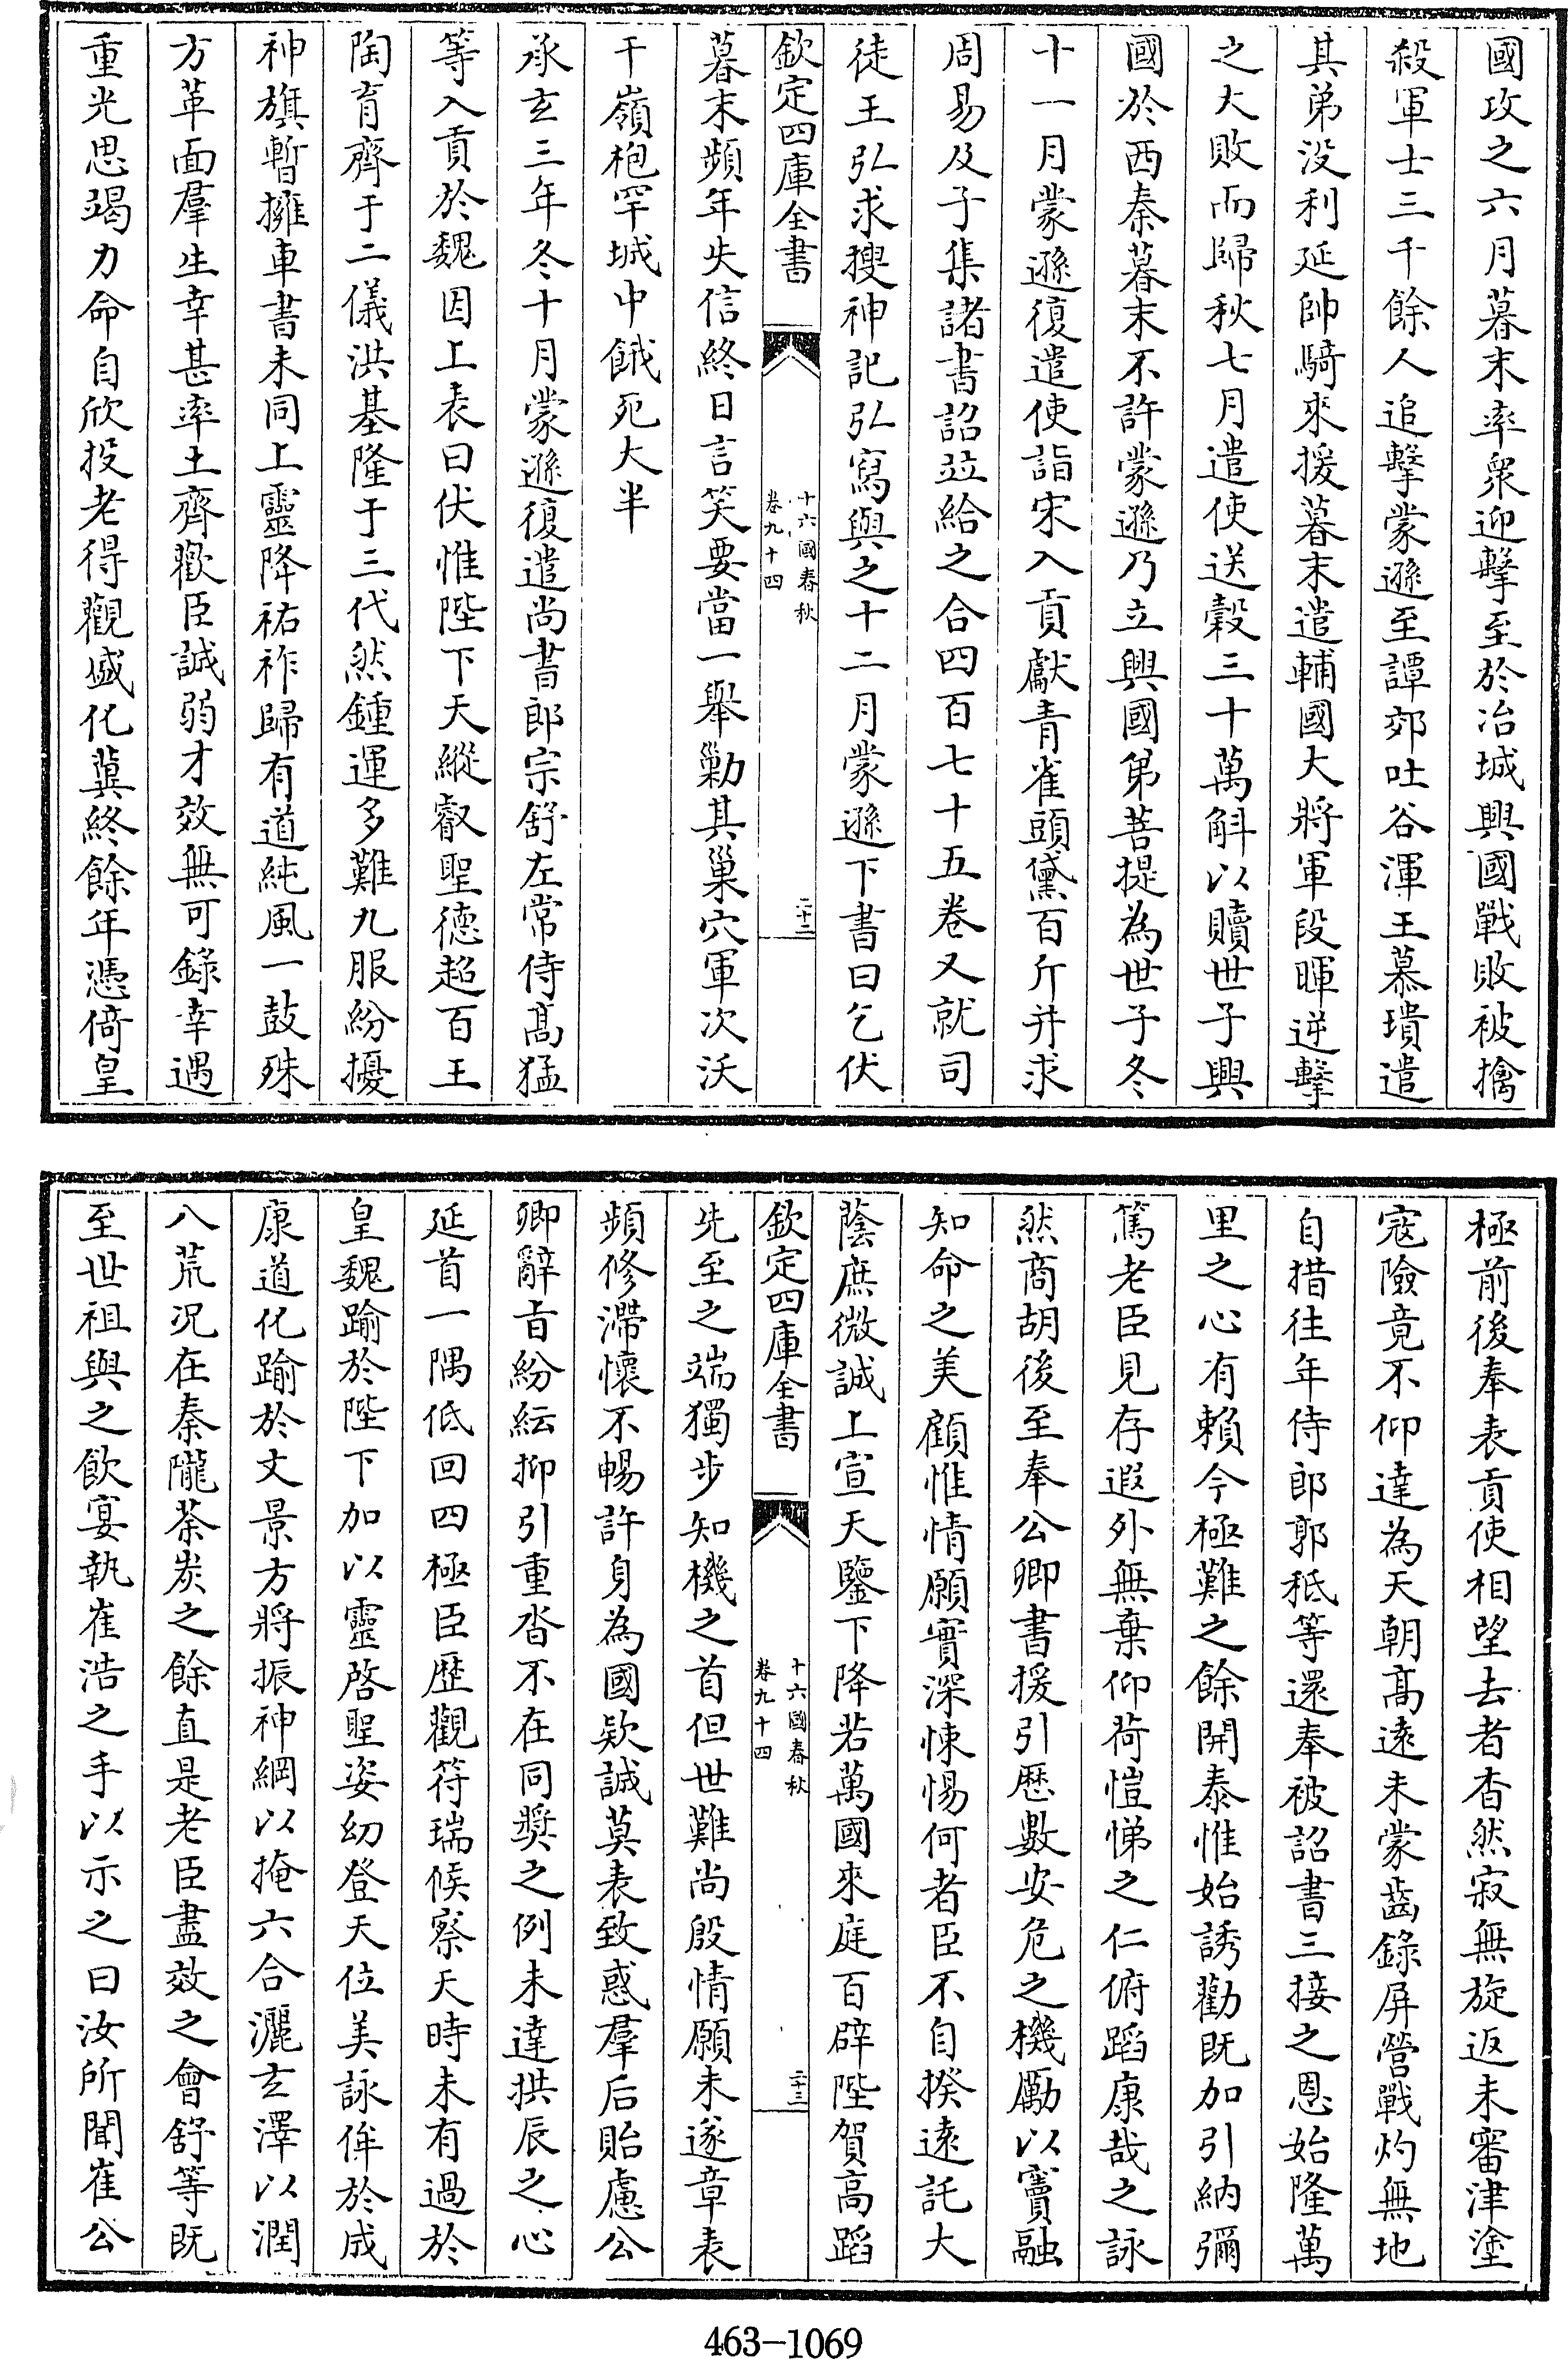 國攻之六月暮末率衆迎擊至於冶城興國戰敗被擒
殺軍士三千餘人追擊蒙遜至譚郊吐谷渾王慕璝遣
其弟没利延帥騎來援暮末遣輔國大將軍段暉逆擊
之大敗而歸秋七月遣使送穀三十萬斛以贖世子興
國於西秦暮末不許蒙遜乃立興國弟菩提為世子冬
十一月蒙遜復遣使詣宋入貢獻青雀頭黛百斤并求
周易及子集諸書詔並給之合四百七十五卷又就司
徒王弘求搜神記弘寫與之十二月蒙遜下書曰乞伏
欽定四庫全書
十六國春秋
卷九十四
二十二
暮末頻年失信終日言笑要當一舉勦其巢穴軍次沃
干嶺枹罕城中餓死大半
承玄三年冬十月蒙遜復遣尚書郎宗舒左常侍髙猛
等入貢於魏因上表曰伏惟陛下天縱叡聖德超百王
陶育齊于二儀洪基隆于三代然鍾運多難九服紛擾
神旗暫擁車書未同上靈降祐祚歸有道純風一鼓殊
方革面羣生幸甚率土齊歡臣誠弱才效無可錄幸遇
重光思竭力命自欣投老得觀盛化冀終餘年憑倚皇
極前後奉表貢使相望去者杳然寂無旋返未審津塗
寇險竟不仰達為天朝髙遠未蒙齒錄屏營戰灼無地
自措往年侍郎郭祗等還奉被詔書三接之恩始隆萬
里之心有賴今極難之餘開泰惟始誘勸既加引納彌
篤老臣見存遐外無棄仰荷愷悌之仁俯蹈康哉之詠
然商胡後至奉公卿書援引歴數安危之機勵以竇融
知命之美顧惟情願實深悚惕何者臣不自揆遠託大
蔭庶微誠上宣天鑒下降若萬國來庭百辟陛賀高蹈
欽定四庫全書
十六國春秋
卷九十四
二十三
先至之端獨步知機之首但世難尚殷情願未遂章表
頻修滯懷不暢許身為國款誠莫表致惑羣后貽慮公
卿辭旨紛紜抑引重沓不在同奬之例未達拱辰之心
延首一隅低回四極臣歴觀符瑞候察天時未有過於
皇魏踰於陛下加以靈啓聖姿幼登天位美詠侔於成
康道化踰於文景方將振神綱以掩六合灑玄澤以潤
八荒况在秦隴荼炭之餘直是老臣盡效之會舒等既
至世祖與之飲宴執崔浩之手以示之曰汝所聞崔公
463-1069